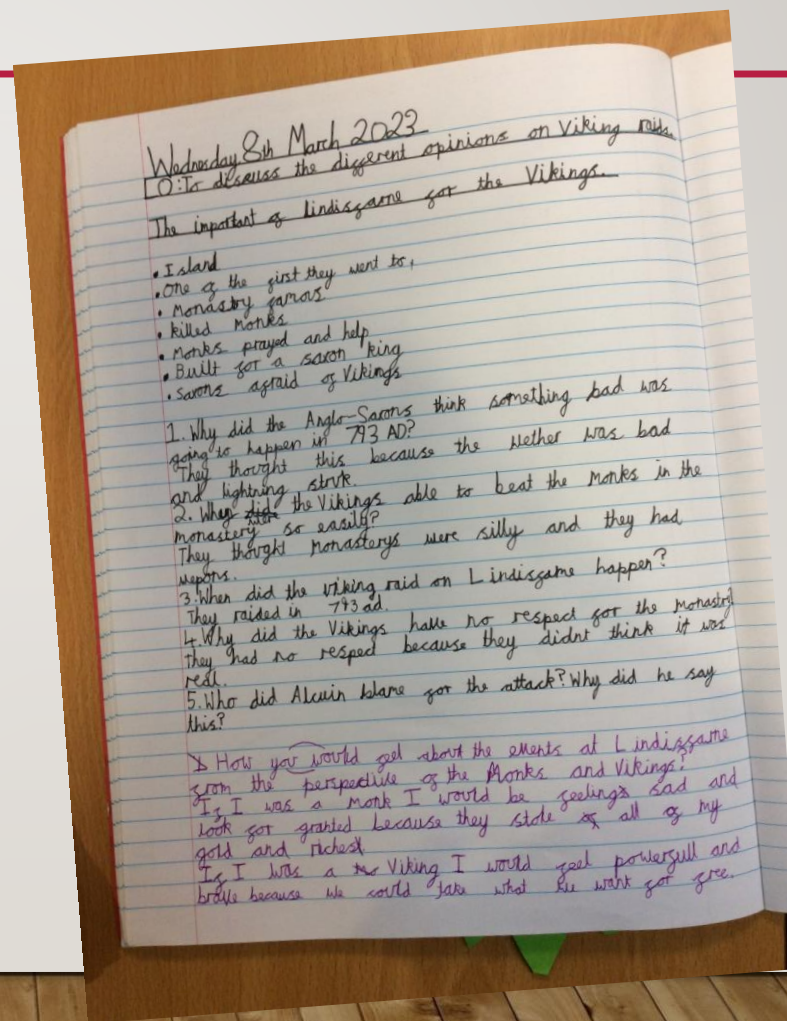 Wednesday 8th March 2023
LO: To discuss the different opinions on Viking raids.
The important of lindisfarne for the Vikings.
• Island
• One of the first they went to,
• Monastry famous
• killed Monks
• Monks prayed and help
• Built for a saxon king
• saxons afraid of Vikings
1. Why did the Anglo-Saxons think something bad was
going to happen in 793 AD?
They thought this because the wether was bad
and lightning struk.
2. Why did were the Vikings able to beat the monks in the
monastery so easily?
They thought monasterys were silly and they had
wepons.
3. When did the viking raid on Lindisfarne happen?
They raided in 793 ad.
4. Why did the Vikings have no respect for the monastry
They had no respect because they didnt think it was
real.
5. Who did Alcuin blame for the attack? Why did he say
this?
How you would feel about the events at Lindisfarne
from the perspective of the Monks and Vikings?
If I was a monk I would be feeling sad and
look for granted because they stole all of my
gold and riches
If I was a Viking I would feel powerfull and
brave because we could take what we want for free.